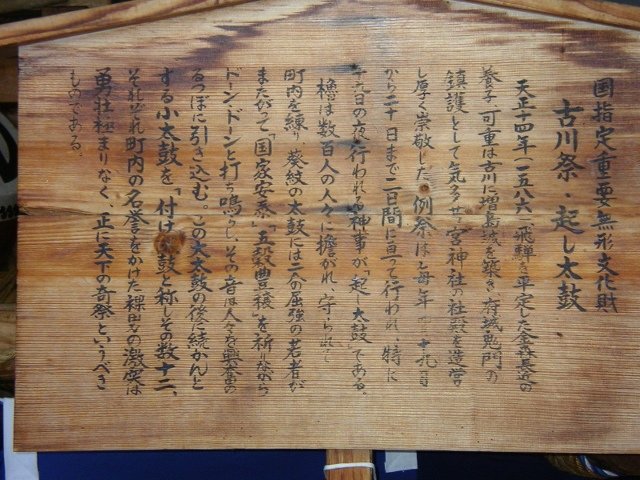 国指定重要無形文化財
古川祭・起し太鼓
天正十四年(一五八六)、飛騨を平定した金森長近の
養子、可重は古川に増島城を築き、府城鬼門の
鎮護として気多若宮神社の社殿を造営
し厚く崇敬した。例祭は毎年 十九日
から二十日まで二日間に亘って行われ、特に
十九日の夜、行われる神事が「起し太鼓」である。
櫓は数百人の人々に擔がれ、守られて
町内を練り、葵紋の太鼓には二人の屈強の若者が
またがって「国家安泰」「五穀豊穣」を祈りながら
ドーン、ドーンと打ち鳴らし、その音は人々を興奮の
るつぼに引き込む。この大太鼓の後に続かんと
する小太鼓を「付け太鼓」と称しその数十二、
それぞれ町内の名誉をかけた裸男の激突は
勇壮極まりなく、正に天下の奇祭というべき
ものである。